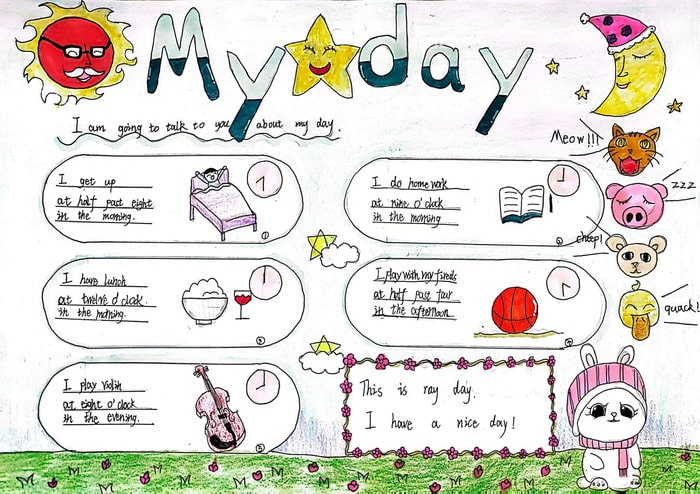 My day
I am going to talk to you about my day.
Meow!!!
zzz
cheep!
quack!
I get up
at half past eight
in the morning.
①
I do homework
at nine o'clock
in the morning
I have lunch
at twelve o'clock.
in the morning.
I play with my
at half past four
in the afternoon
I play violin
at eight o'clock
in the evening.
This is ray day.
I have a nice day!